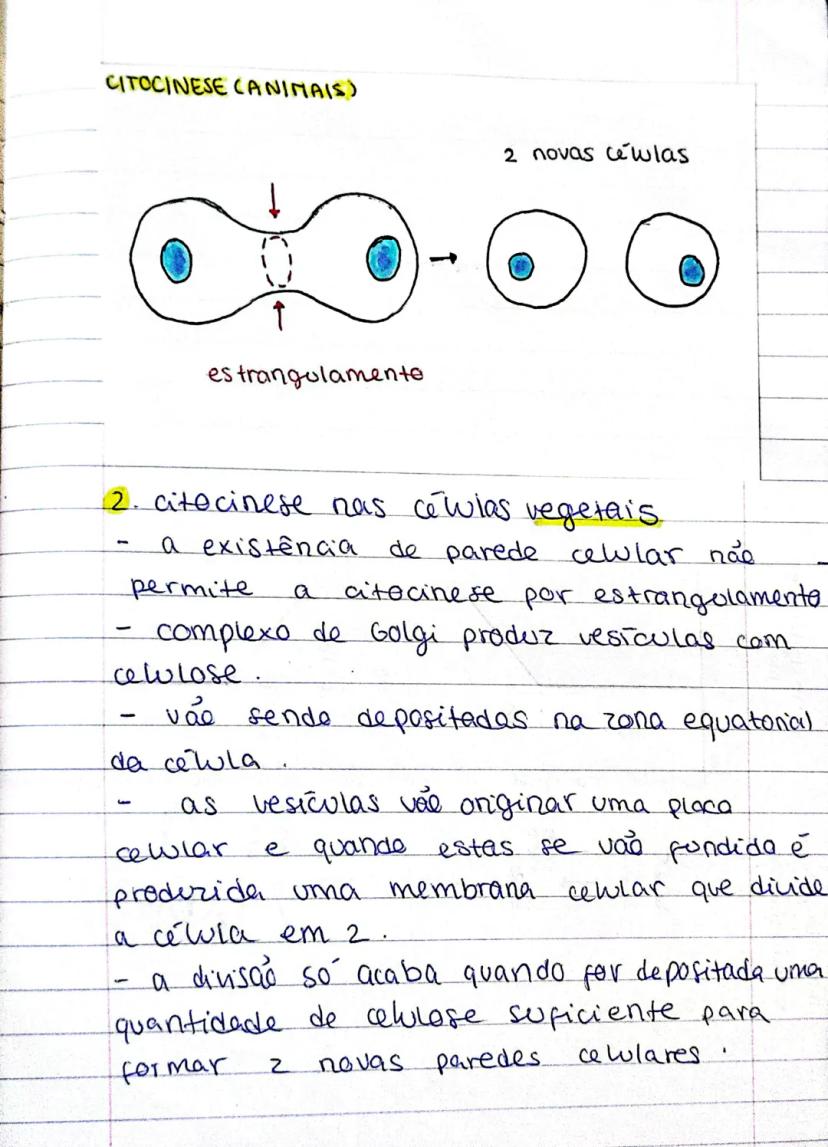 CITOCINESE (ANIMAIS)
2 novas células
estrangulamento
2. citocinese nas células vegetais
- a existência de parede celular não
permite a citocinese por estrangulamento
- complexo de Golgi produz vesículas com
celulose.
- vão sendo depositadas na zona equatorial
da célula.
- as vesículas vão originar uma placa
celular e quando estas se vão fundida é
produzida uma membrana celular que divide
a célula em 2.
- a divisão só acaba quando for depositada uma
quantidade de celulose suficiente para
formar 2 novas paredes celulares.